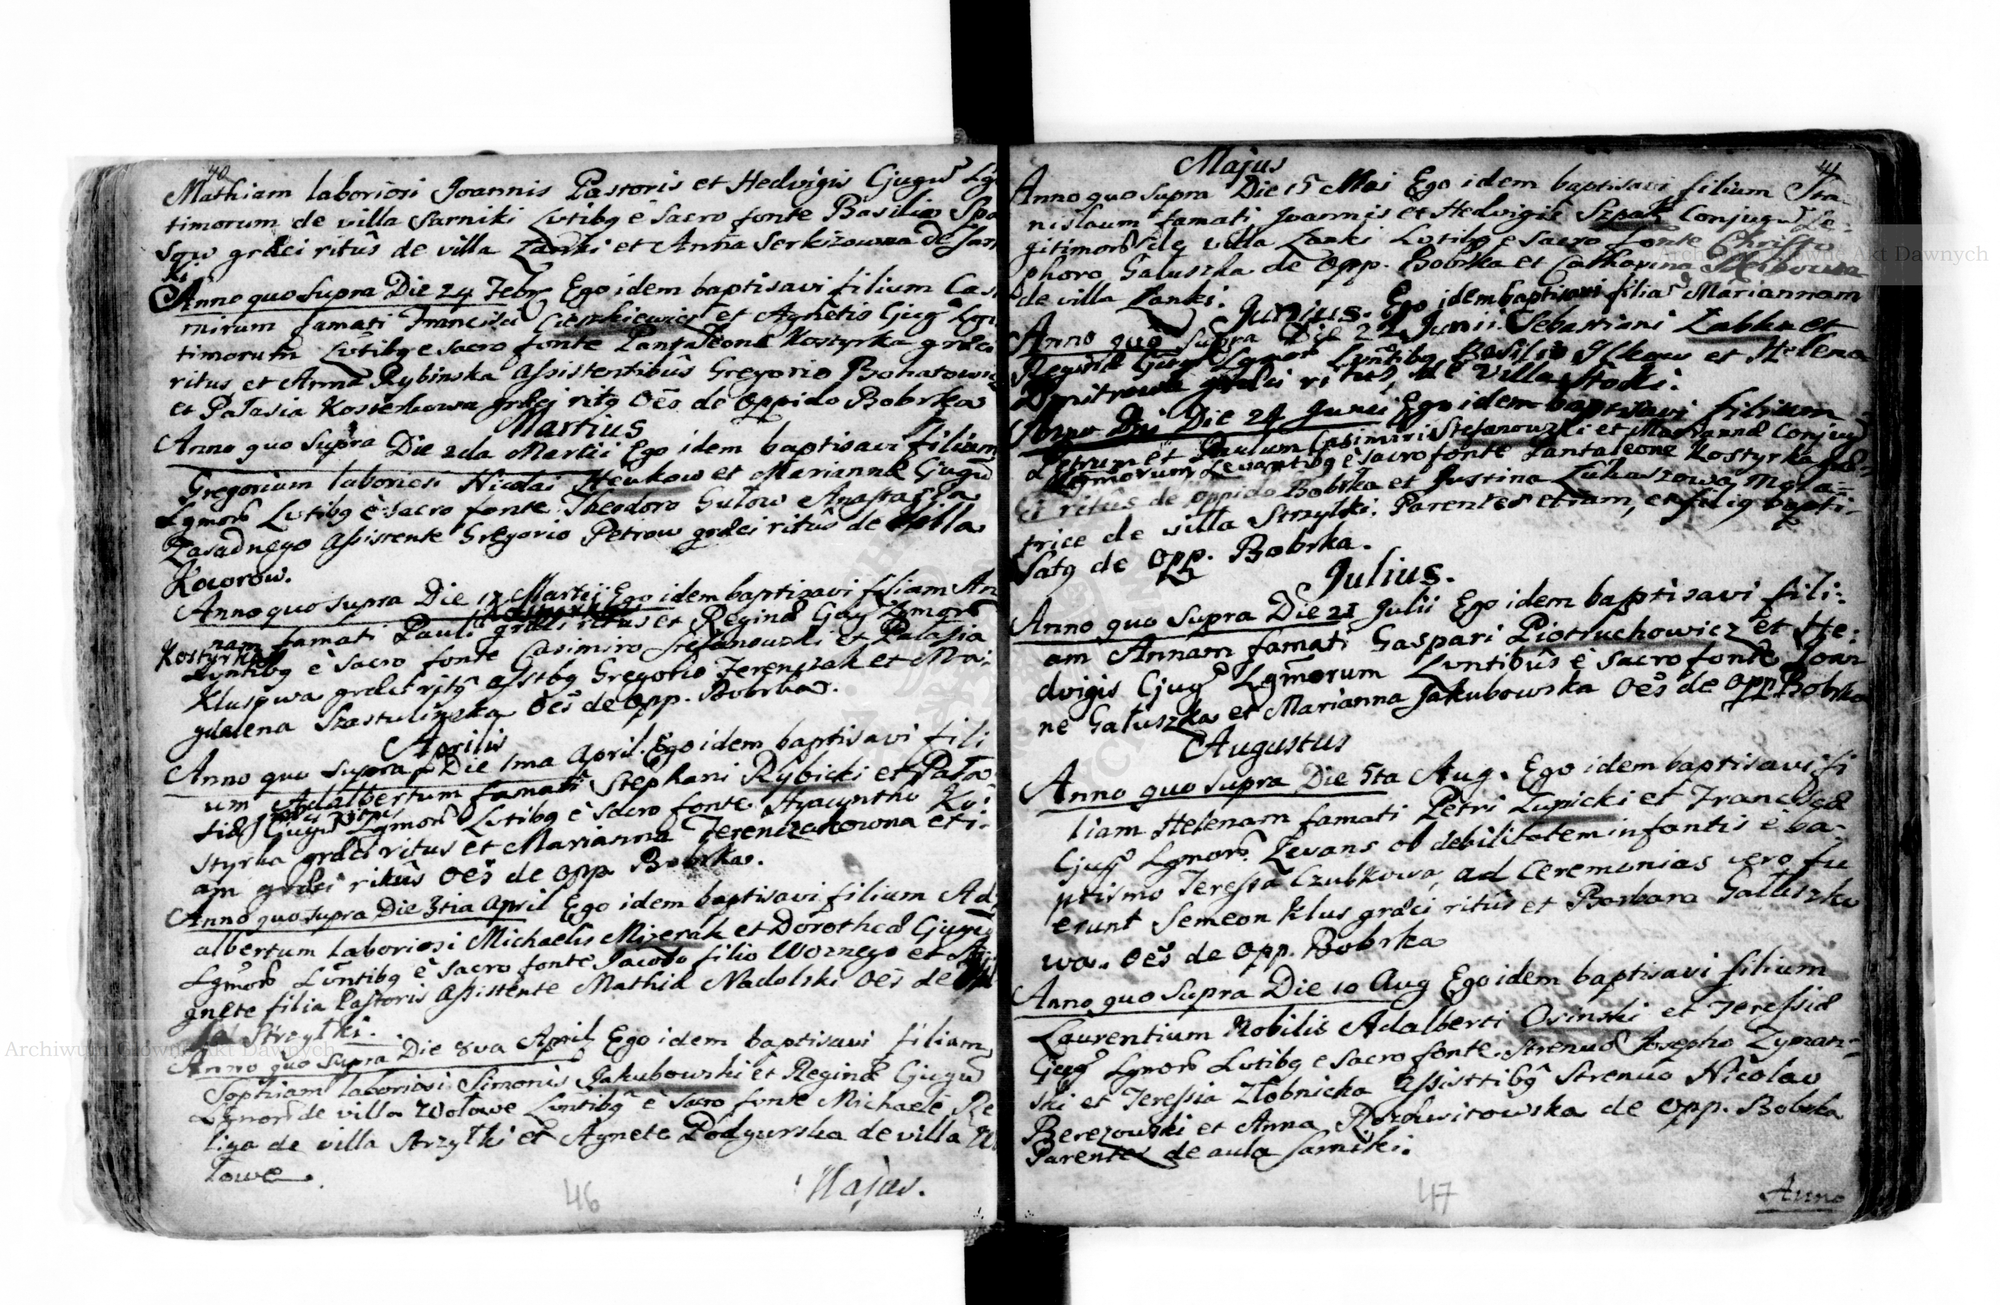 40
Mathiam laboriosi Joannis Pastoris et Hedvigis Cjugū Lgi
timorum de villa Sarniki Lvtibg è Sacro fonte Basilio
grǣci ritus de villa Łanki et Anna Serkizowna de Sarn
ki
Anno quo Supra Die 24 Febr Ego idem baptisavi filium Casi
mirum famati Francisci et Agnetis Cjug Legi
timorum Lvtibg e Sacro fonte Pantaleone Kostyrka grǣci
ritus et Anna Rybinska Assistentibūs Gregorio Bohatowicz
et Palasia grǣci ritg Oēs de Oppido Bobrka
Martius
Anno quo Supra Die 2da Martii Ego idem baptisavi filium
Gregorium laboriosi Nicolai Steukow et Mariannæ Cjugū
Lgmorū Lvtibg è Sacro fonte Theodoro Gutow Anastasia
Zasadnego Assistente Gregorio Petrow grǣci ritūs de Villa
Kocorow.
Anno quo Supra Die 17 Martii Ego idem baptisavi filiam An
nam famati Pauli grǣci ritus et Reginæ Cjug Lgmorū
Kostyrka
Lvntibg è Sacro fonte Casimiro Stefanowski et Palasia
Klusowa grǣci ritg Asstbg Gregorio Terenczak et Ma:
gdalena Szastulinska Oēs de Opp. Bobrka.
Aprilis
Anno quo Supra Die 1ma April. Ego idem baptisavi fili
um Adalbertum famati Stephani Rybicki et Pala
siæ Cjugū Lgmorū Lvtibg è Sacro fonte Hyacyntho Ko:
grǣci ritus
styrka grǣci ritus et Marianna Terenczakowna eti:
am grǣci ritūs Oēs de Opp. Bobrka.
Anno quo Supra Die 3tia April Ego idem baptisavi filium Ad
albertum laboriosi Michaelis Mizerak et Dorotheæ Cjugū
Lgmorū Lūntibg è Sacro fonte Jacobo filio Woznego et A
gnete filia Pastoris Assistente Mathia Nadolski Oēs de Vil
la Strzylki.
Anno quo Supra Die 8va April Ego idem baptisavi filiam
Sophiam laboriosi Simonis Jakubowski et Reginæ Cjugū
Lgmorū de villa Wolowe Lvntibg è Sacro fonte Michaele Re
liga de villa Strzylki et Agnete Podgurska de villa W
lowe.
Majus.
46
41
Majus
Anno quo Supra Die 15 Mai Ego idem baptisavi filium Sta
nislaum famati Joannis et Hedvigis Szpak Conjugū Le:
gitimorū villa Łanki Lvtibg e Sacro fonte Christo
phoro Galuszka de Opp. Bobrka et Catharina
de villa Łanki.
Junius.
Ego idem baptisavi filiā Mariannam
Anno quo Supra Die 22 Junii Sebastiani Zabka et
Reginæ Cjug Lgmorū Lvntibg Basilio Ilkow et Helena
Dmitrowna grǣci ritūs, de Villa Stoki.
Anno Dni Die 24 Junii Ego idem baptisavi filium
Petrum et Paulum Casimiri Stefanowski et Mariannæ Conjug
Lgmorum Levantibg è Sacro fonte Pantaleone Kostyrka græ:
ci ritūs de Oppido Bobrka et Justina Lukaszowa
trice de villa Strzylki. Parentes etiam, et filig bapti:
satg de Opp. Bobrka.
Julius.
Anno quo Supra Die 21 Julii Ego idem baptisavi fili:
am Annam famati Gaspari Piotruchowicz et He:
dvigis Cjugū Lgmorum Lvntibūs è Sacro fonte Joan
ne Galuszka et Marianna Jakubowska Oēs de Opp Bobrka
Augustus
Anno quo Supra Die 5ta Aug. Ego idem baptisavi fi
liam Helenam famati Petri Lupicki et Franciscæ
Cjugū Lgmorū. Levans ob debilitatem infantis è ba:
ptismo Teressa Czubkowa, ad Ceremonias vero fu
erunt Semeon Klus grǣci ritūs et Barbara Galuszko
wa. Oēs de Opp. Bobrka
Anno quo Supra Die 10 Aug Ego idem baptisavi filium
Laurentium Nobilis Adalberti Osinski et Teressiæ
Cjug Lgmorū Lvtibg e Sacro fonte. Strenuo Josepho Zyman:
ski et Teressia Zlobnicka Assisttibg Strenuo Nicolao
Berezowski et Anna Rozdwitowska de Opp. Bobrka
Parentes de aula Sarniki.
Anno
47
Archiwum Główne Akt Dawnych
Archiwum Główne Akt Dawnych